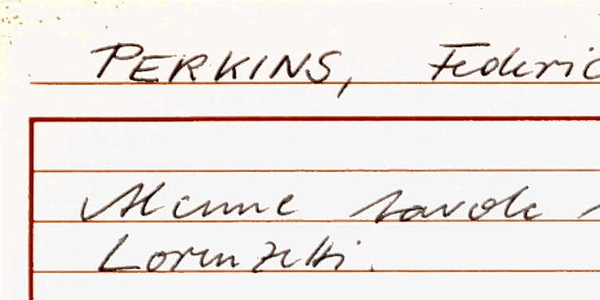 PERKINS, Federic
Alcune tavole
Lorenzetti.